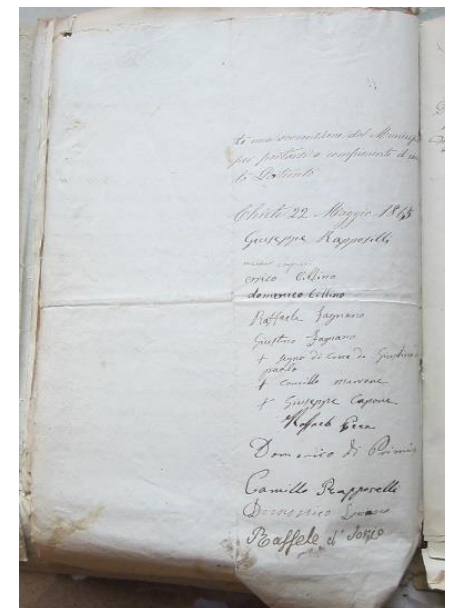 to una commissione del Municip
per portarsi a compimento
Chieti 22 Maggio
Giuseppe Rapposelli
errico Cillino
domenico Cillino
Raffaele Fagnano
Giustino Fagnano
+ segno di croce di Giustino
paolo
+ camillo marrone
+ Giuseppe Capone
Raffaele
Domenico di Primio
Camillo Rapposelli
Domenico
Raffele d'